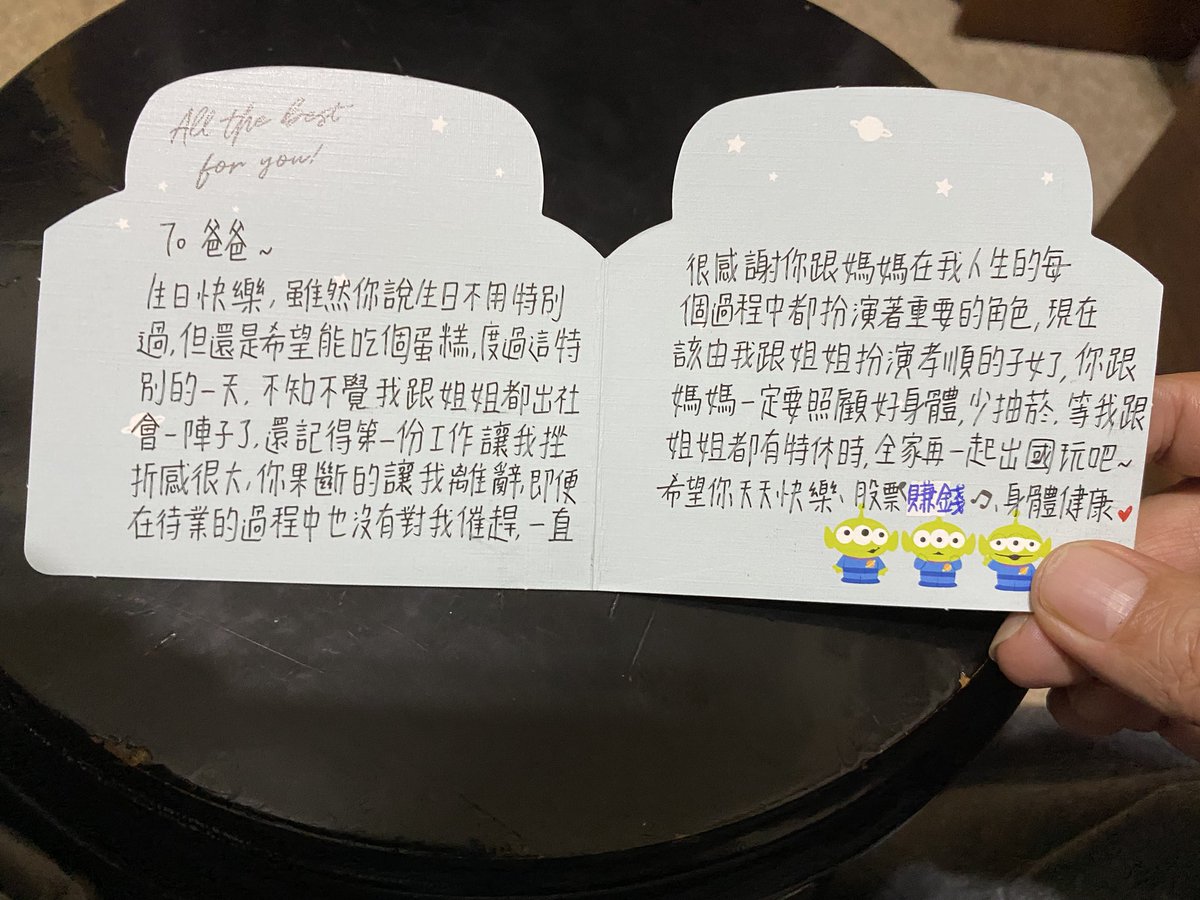 All the best
for you!
To 爸爸~
生日快樂，雖然你說生日不用特別
過，但還是希望能吃個蛋糕，度過這特
別的一天，不知不覺我跟姐姐都出社
會一陣子了，還記得第一份工作讓我挫
折感很大，你果斷的讓我離辭，即便
在待業的過程中也沒有對我催趕，一直
很感謝你跟媽媽在我人生的每
個過程中都扮演著重要的角色，現在
該由我跟姐姐扮演孝順的子女了，你跟
媽媽一定要照顧好身體，少抽菸，等我跟
姐姐都有特休時，全家再一起出國玩吧~
希望你天天快樂、股票賺錢、身體健康